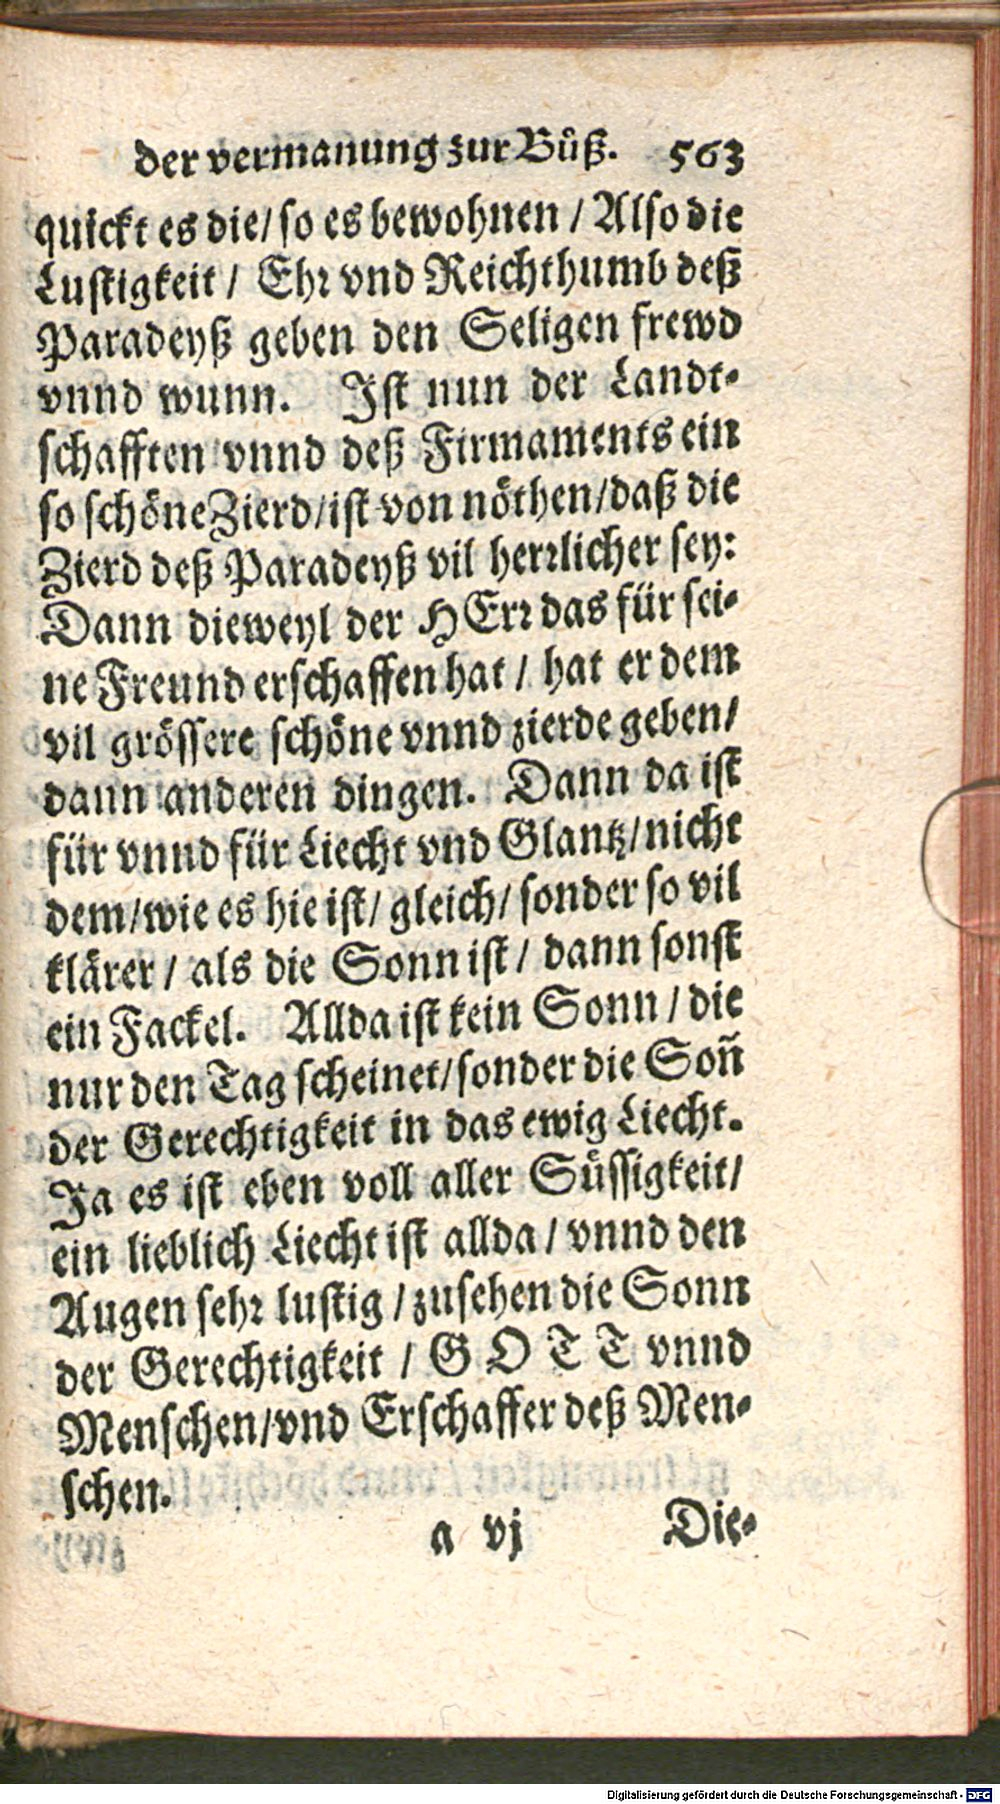 der vermanung zur Buͤß. 563
quickt es die/ so es bewohnen / Also die
Lustigkeit / Ehr vnd Reichthumb deß
Paradeyß geben den Seligen frewd
vnnd wunn. Ist nun der Landt-
schafften vnnd deß Firmaments ein
so schöne Zierd/ist von nöthen/daß die
Zierd deß Paradeyß vil herrlicher sey:
Dann dieweyl der HErr das für sei-
ne Freund erschaffen hat / hat er dem
vil grössere schöne vnnd zierde geben/
dann anderen dingen. Dann da ist
für vnnd für Liecht vnd Glantz/nicht
dem/wie es hie ist/ gleich/ sonder so vil
klärer / als die Sonn ist / dann sonst
ein Fackel. Allda ist kein Sonn / die
nur den Tag scheinet/sonder die Soñ
der Gerechtigkeit in das ewig Liecht.
Ja es ist eben voll aller Süssigkeit/
ein lieblich Liecht ist allda / vnnd den
Augen sehr lustig / zusehen die Sonn
der Gerechtigkeit / GOTT vnnd
Menschen/vnd Erschaffer deß Men-
schen.
a vj Die-
Digitalisierung gefördert durch die Deutsche Forschungsgemeinschaft - DFG